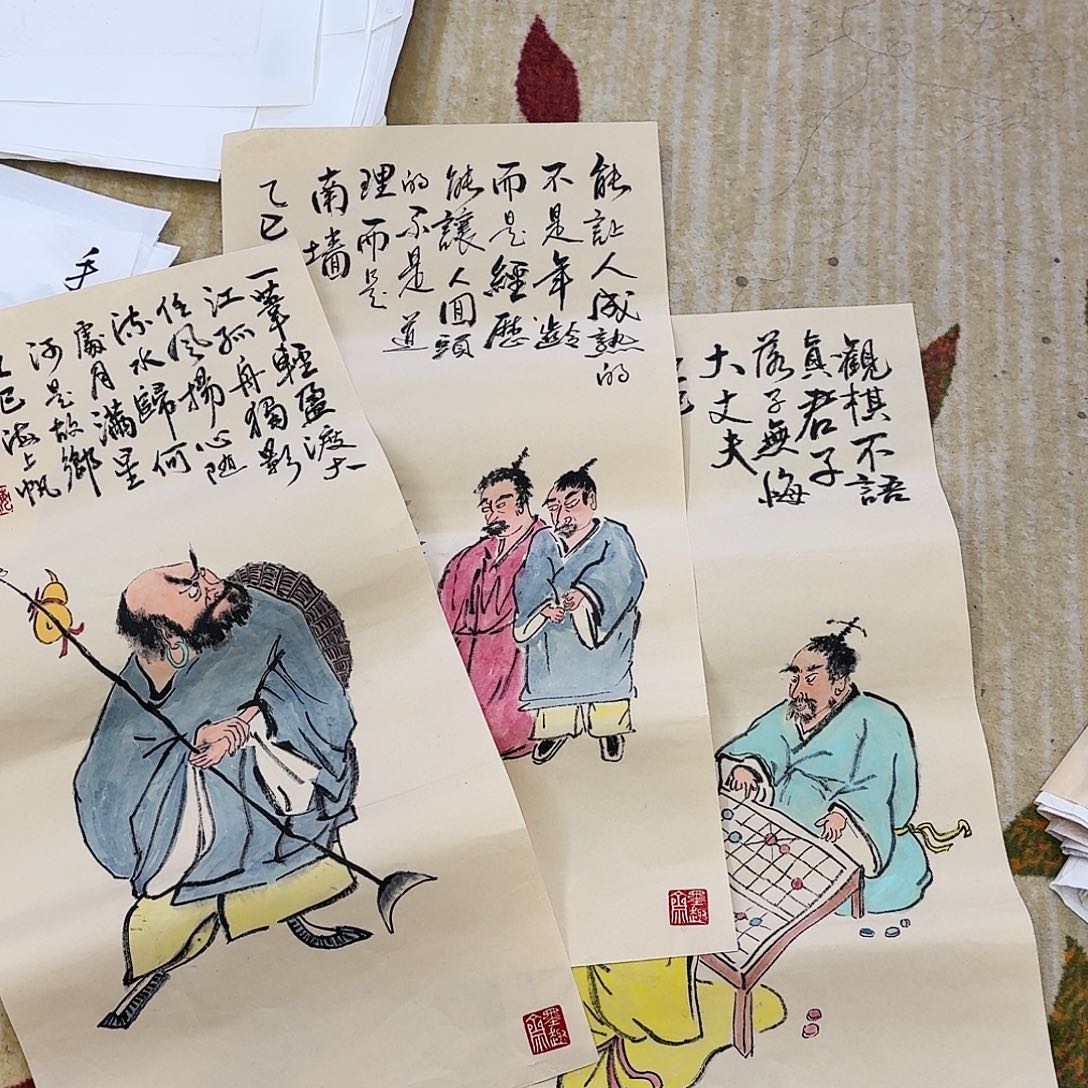 一葦輕盈渡大
江孤舟獨影
任風揚心随
流水歸何
處月滿星
河是故鄉
乙巳海上帆
墨趣齋
能让人成熟的
不是年齡
而是經歷
能讓人回頭
的不是道
理而是
南墻
乙巳
墨趣齋
觀棋不語
真君子
落子無悔
大丈夫
手